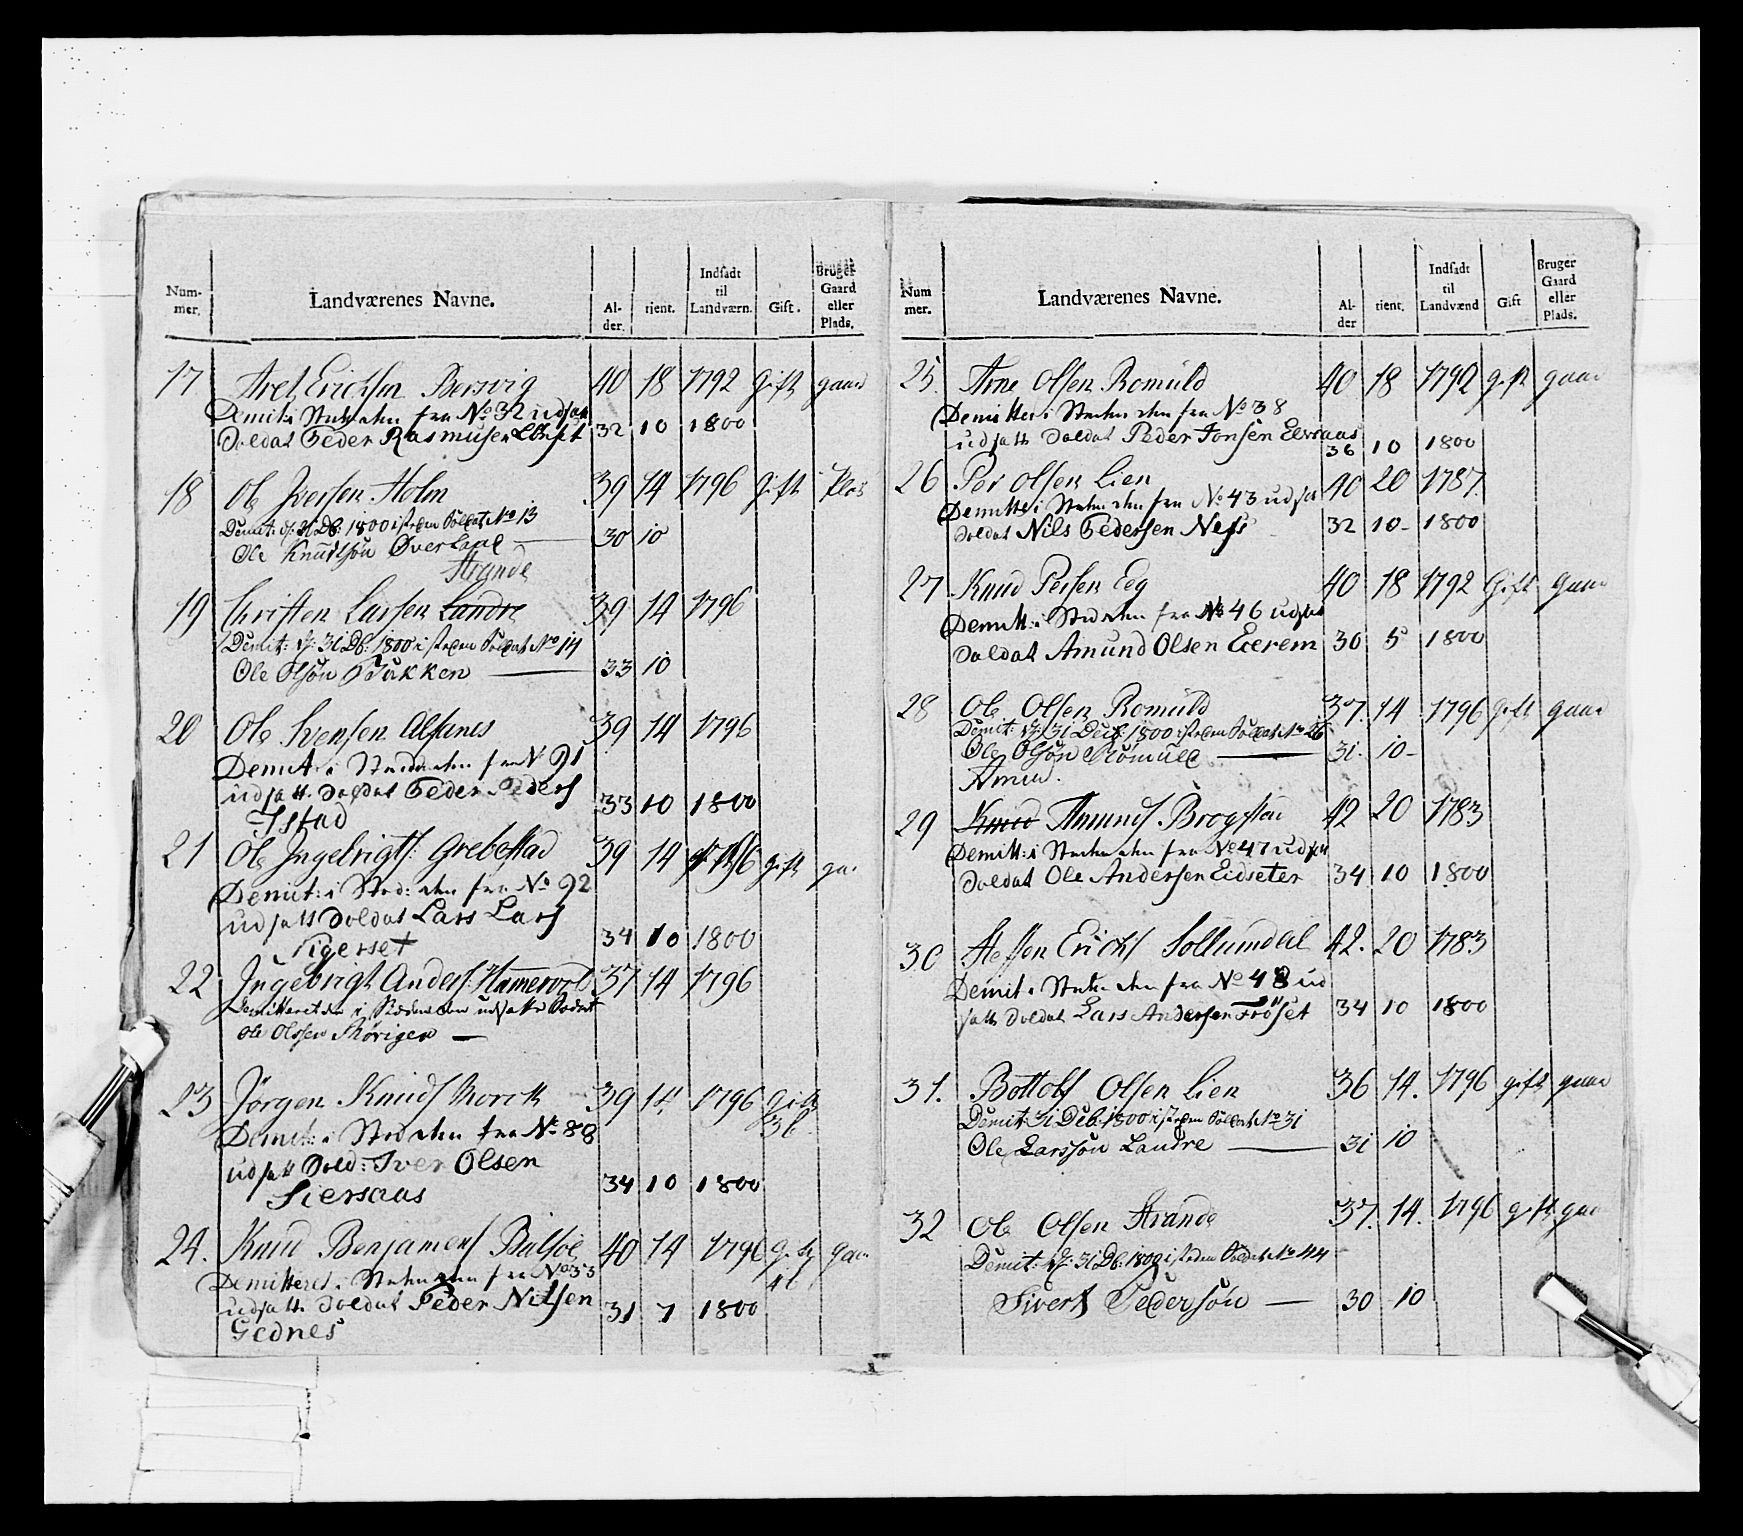 Num-
mer.
Landværenes Navne.
Al-
der.
tient.
Indsadt
til
Landværn.
Gift.
Bruger
Gaard
eller
Plads.
17 Erichsen 40 18 1792 Gift gaard
fra No 32 udsat
Soldat Peder Rasmusen 32 10 1800
18 Ole Iversen Holm 39 14 1796 gift
Demit: 31 Db: 1800 i steden Soldat No 13
Ole Knudsøn Øverland 30 10
Strande
19 Christen Larsen Landre 39 14 1796
Demit: 31 Db: 1800 i steden Soldat No 14
Ole Olsøn Bakken 33 10
20 Ole Svensen Alfsnes 39 14 1796
Demit: i Steden den fra N 91
udsatt Soldat Peder Peders
Istad 33 10 1800
21 Ole Ingebrigts: Grebestad 39 14 1796 gift
Demit: i Sted: den fra No 92
udsatt Soldat Lars Lars
Sigerset 34 10 1800
22 Ingebrigt Anders: 37 14 1796
Demitteret den i Steden den udsatte Soldat
Ole Olsen
23 Jørgen Knuds 39 14 1796 Gift
Demit: i Steden fra No 88
udsatt Sold: Iver Olsen
Siersaas 34 10 1800
24. Knud Benjamens Bolsøe 40 14 1796
Demitteret i Steden den fra No 33
udsatt Soldat Peder Nilsen
Gednes 31 7 1800
Num
mer.
Landværenes Navne.
Al-
der
tient.
Indsadt
til
Landværnd
Gift
Bruger
Gaard
eller
Plads.
25. Arne Olsen Romuld 40 18 1792 gift gaard
Demitter i Steden den fra No 38
udsatt Soldat Peder Jonsen
36 10 1800
26 Per Olsen Lien 40 20 1787.
Demitter i Steden den fra No 43 udsat
Soldat Nils Pedersen Ness 32 10 1800
27 Knud Persen Eeg 40 18 1792 Gift gaard
Demitt: i Steden fra No 46 udsat
Soldat Amund Olsen Eerem 30 5 1800
28 Ole Olsen Romuld 37. 14 1796 gift gaard
Demit: 31 Decb: 1800 i steden Soldat No 26
Ole Olsøn Romuld 31. 10
29 Knud Amunds. Brogstad 42 20 1783
Demitt: i Steden den fra No 47 udsat
Soldat Ole Andersen Eidseter 34 10 1800
30 Steffen Erichs 42. 20 1783
Demit i Steden den fra No 48 ud
satt Soldat Lars Andersen Frøset 34 10 1800
31. Bottolf Olsen Lien 36 14. 1796 gift gaard
Demit: 31 Dcb: 1800 i steden Soldat No 31
Ole Larssøn Landre 31 10
32 Ole Olsen Strande 37. 14. 1796 gift
Demit: 31 Db: 1800 i steden Soldat No 44
Sivert Pedersøn 30 10